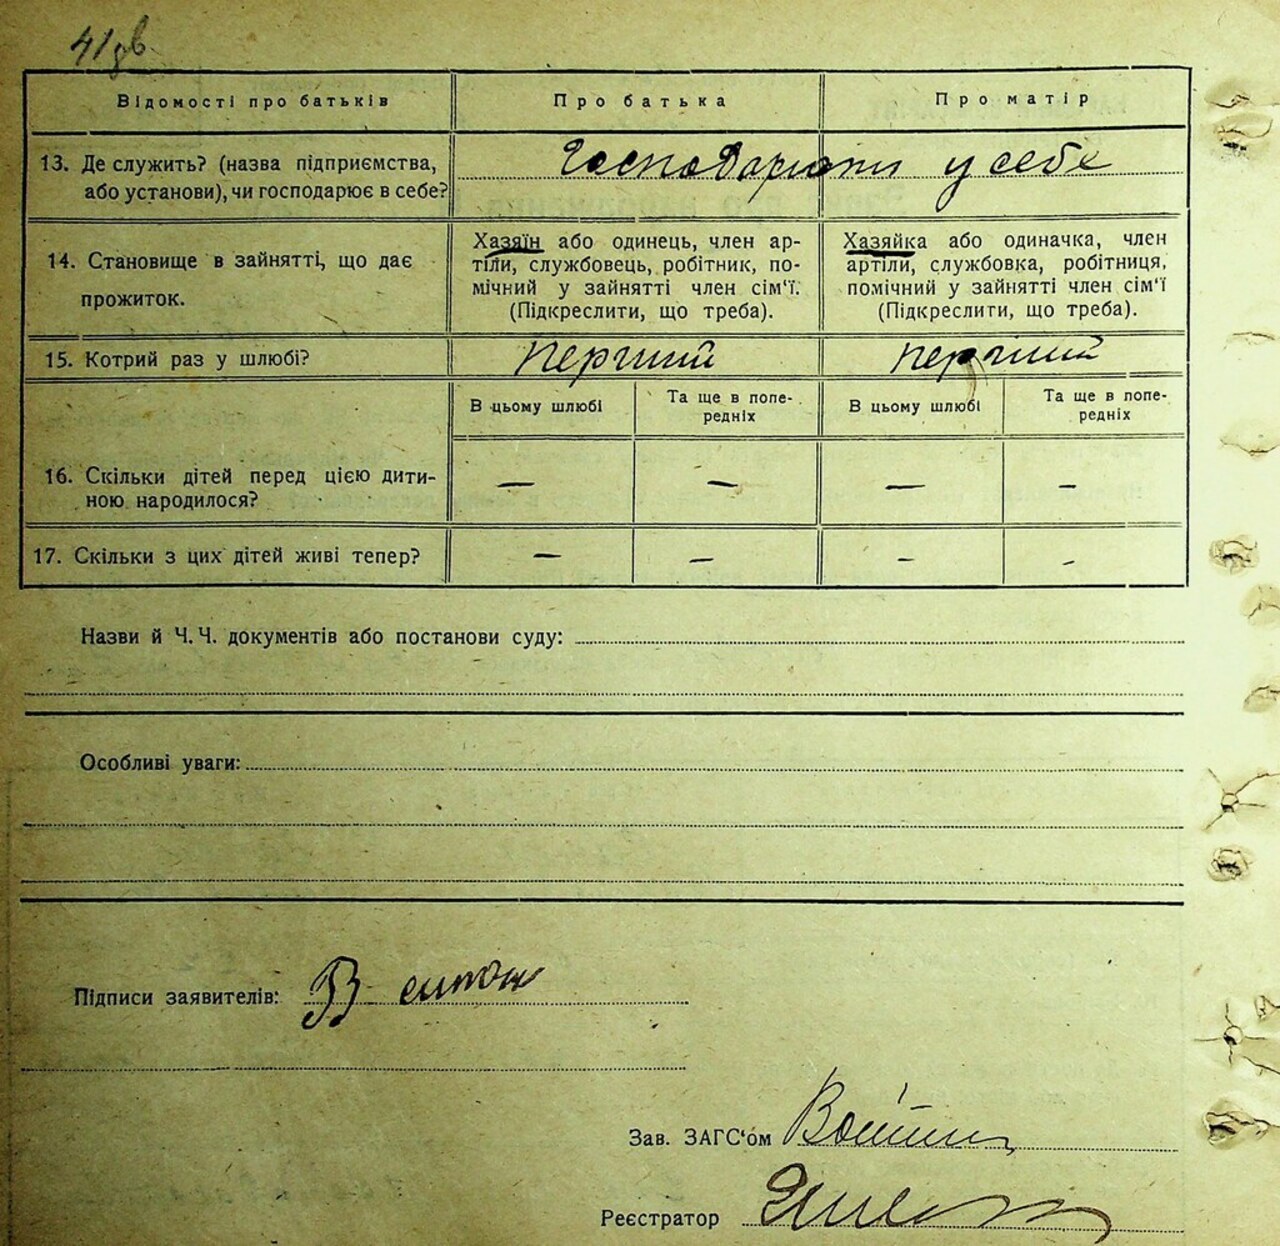 41зв.
Відомості про батьків
Про батька
Про матір
13. Де служить? (назва підприємства,
або установи), чи господарює в себе?
господарюють у себе
14. Становище в зайнятті, що дає
прожиток.
Хазяїн або одинець, член ар-
тіли, службовець, робітник, по-
мічний у зайнятті член сім'ї.
(Підкреслити, що треба).
Хазяйка або одиначка, член
артіли, службовка, робітниця,
помічний у зайнятті член сім'ї
(Підкреслити, що треба).
15. Котрий раз у шлюбі?
перший
перший
В цьому шлюбі
Та ще в попе-
редніх
В цьому шлюбі
Та ще в попе-
редніх
16. Скільки дітей перед цією дити-
ною народилося?
— — — —
17. Скільки з цих дітей живі тепер?
— — — —
Назви й Ч. Ч. документів або постанови суду:
Особливі уваги:
Підписи заявителів:
Зав. ЗАГС'ом
Реєстратор